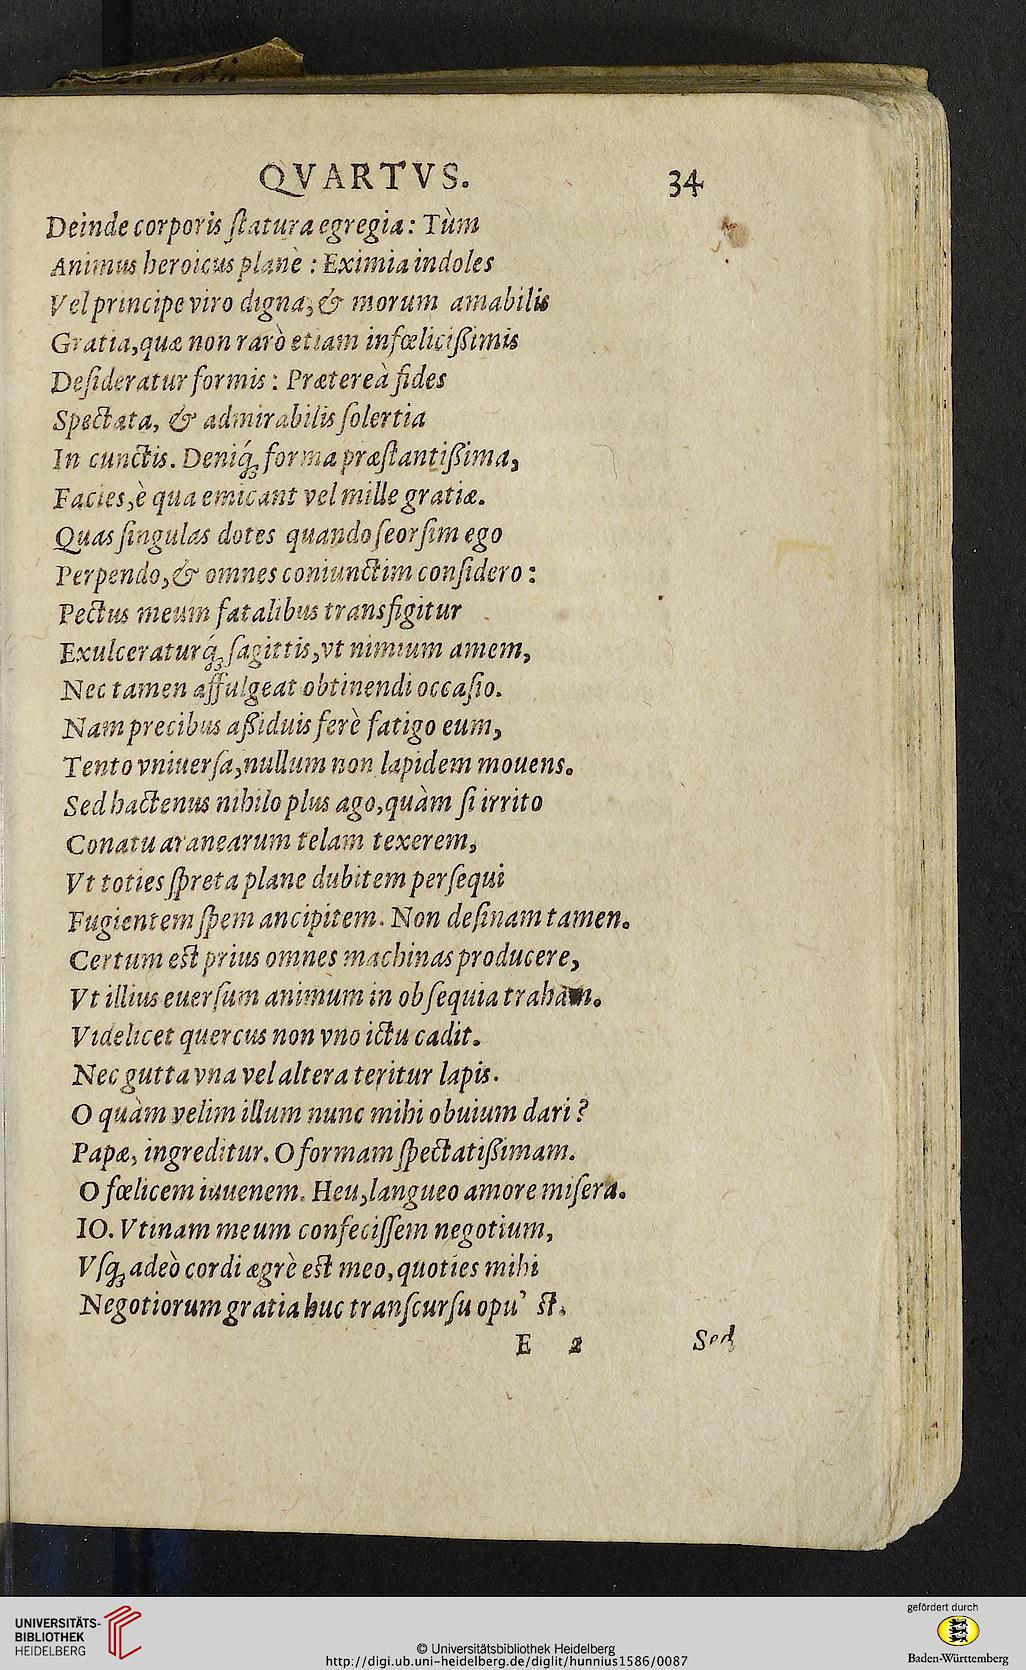 QVARTVS. 34
Deinde corporis ſtatura egregia: Tùm
Animus heroicus planè: Eximia indoles
Vel principe viro digna, & morum amabilis
Gratia, quæ non rarò etiam infœlicißimis
Deſideratur formis: Prætereà fides
Spectata, & admirabilis ſolertia
In cunctis. Deniq́; forma præſtantißima,
Facies, è qua emicant vel mille gratiæ.
Quas ſingulas dotes quando ſeorſim ego
Perpendo, & omnes coniunctim conſidero:
Pectus meum fatalibus transfigitur
Exulceraturq́; ſagittis, vt nimium amem,
Nec tamen affulgeat obtinendi occaſio.
Nam precibus aßiduis ferè fatigo eum,
Tento vniuerſa, nullum non lapidem mouens.
Sed hactenus nihilo plus ago, quàm ſi irrito
Conatu aranearum telam texerem,
Vt toties ſpreta plane dubitem perſequi
Fugientem ſpem ancipitem. Non deſinam tamen.
Certum est prius omnes machinas producere,
Vt illius euerſum animum in obſequia traham.
Videlicet quercus non vno ictu cadit.
Nec gutta vna vel altera teritur lapis.
O quàm velim illum nunc mihi obuium dari?
Papæ, ingreditur. O formam ſpectatißimam.
O fœlicem iuuenem. Heu, langueo amore miſera.
IO. Vtinam meum confeciſſem negotium,
Vſq; adeò cordi ægrè est meo, quoties mihi
Negotiorum gratia huc transcurſu opu' st.
E 2 Sed
UNIVERSITÄTS-
BIBLIOTHEK
HEIDELBERG
© Universitätsbibliothek Heidelberg
http://digi.ub.uni-heidelberg.de/diglit/hunnius1586/0087
gefördert durch
Baden-Württemberg